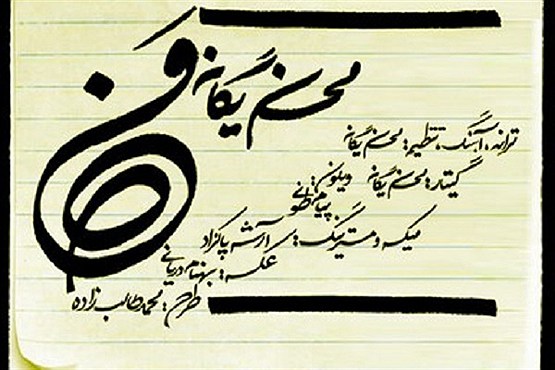 محسن یگانه
ترانه، آهنگ، تنظیم: محسن یگانه
گیتار: محسن یگانه ویلون:
پیام طونی
میکس و مسترینگ: آرش پاکزاد
عکس: بهنام دریانی
طرح: محمد طالب زاده